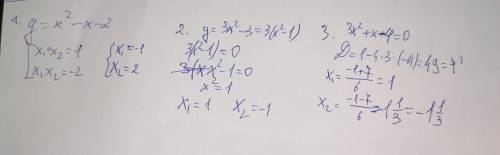 1. y = x² - x - 2
{ x₁ + x₂ = 1
x₁x₂ = -2
{ x₁ = -1
x₂ = 2
2. y = 3x² - 3 = 3(x² - 1)
3(x² - 1) = 0
x² - 1 = 0
x² = 1
x₁ = 1 x₂ = -1
3. 3x² + x - 4 = 0
D = 1 - 4·3·(-4) = 49 = 7²
x₁ = (-1+7)/6 = 1
x₂ = (-1-7)/6 = -1 1/3 = -1 1/3